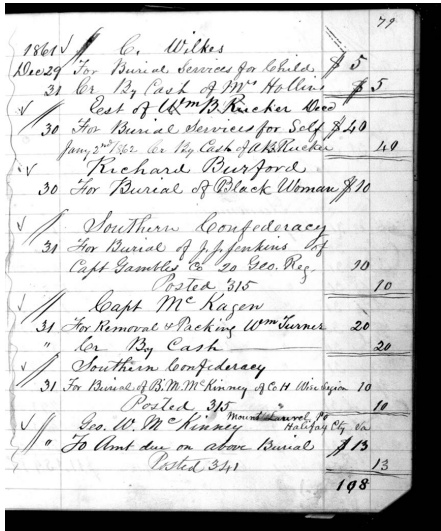 79
1861 C. Wilkes
Dec 29 For Burial Services for Child $ 5
31 Cr By Cash of Mrs Hollins $ 5
Est of Wm B. Rucker Decd
30 For Burial Services for Self $ 40
Jany 2nd 1862 Cr By Cash of A B Rucker 40
Richard Burford
30 For Burial of Black Woman $ 10
Southern Confederacy
31 For Burial of J. J. Jenkins of
Capt Gambles Co 20 Geo. Reg 10
Posted 315 10
Capt McKagen
31 For Removal & Packing Wm Turner 20
" Cr By Cash 20
Southern Confederacy
31 For Burial of B. M. McKinney of Co H Wise Legion 10
Posted 315 10
Mount Laurel, Po
Geo. W. McKinney Halifax Cty Va
" To Amt due on above Burial $ 13
Posted 341 13
108